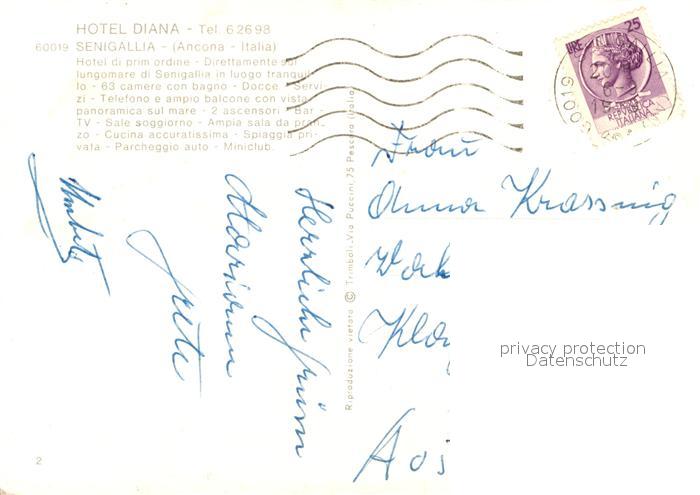 HOTEL DIANA - Tel. 62698
60019 SENIGALLIA - (Ancona - Italia)
Hotel di prim'ordine - Direttamente sul
lungomare di Senigallia in luogo tranquil-
lo - 63 camere con bagno - Docce - Servi-
zi - Telefono e ampio balcone con vista
panoramica sul mare - 2 ascensori - Bar -
TV - Sale soggiorno - Ampia sala da pran-
zo - Cucina accuratissima - Spiaggia pri-
vata - Parcheggio auto - Miniclub.
Herzliche Grüsse
Marianne
Grete
Umberto
Riproduzione vietata © Trimboli - Via Puccini, 75 Pescara (Italia)
LIRE 25
REPUBBLICA
ITALIANA
60019
Frau
Anna Krassnig
Kla
privacy protection
Datenschutz
2